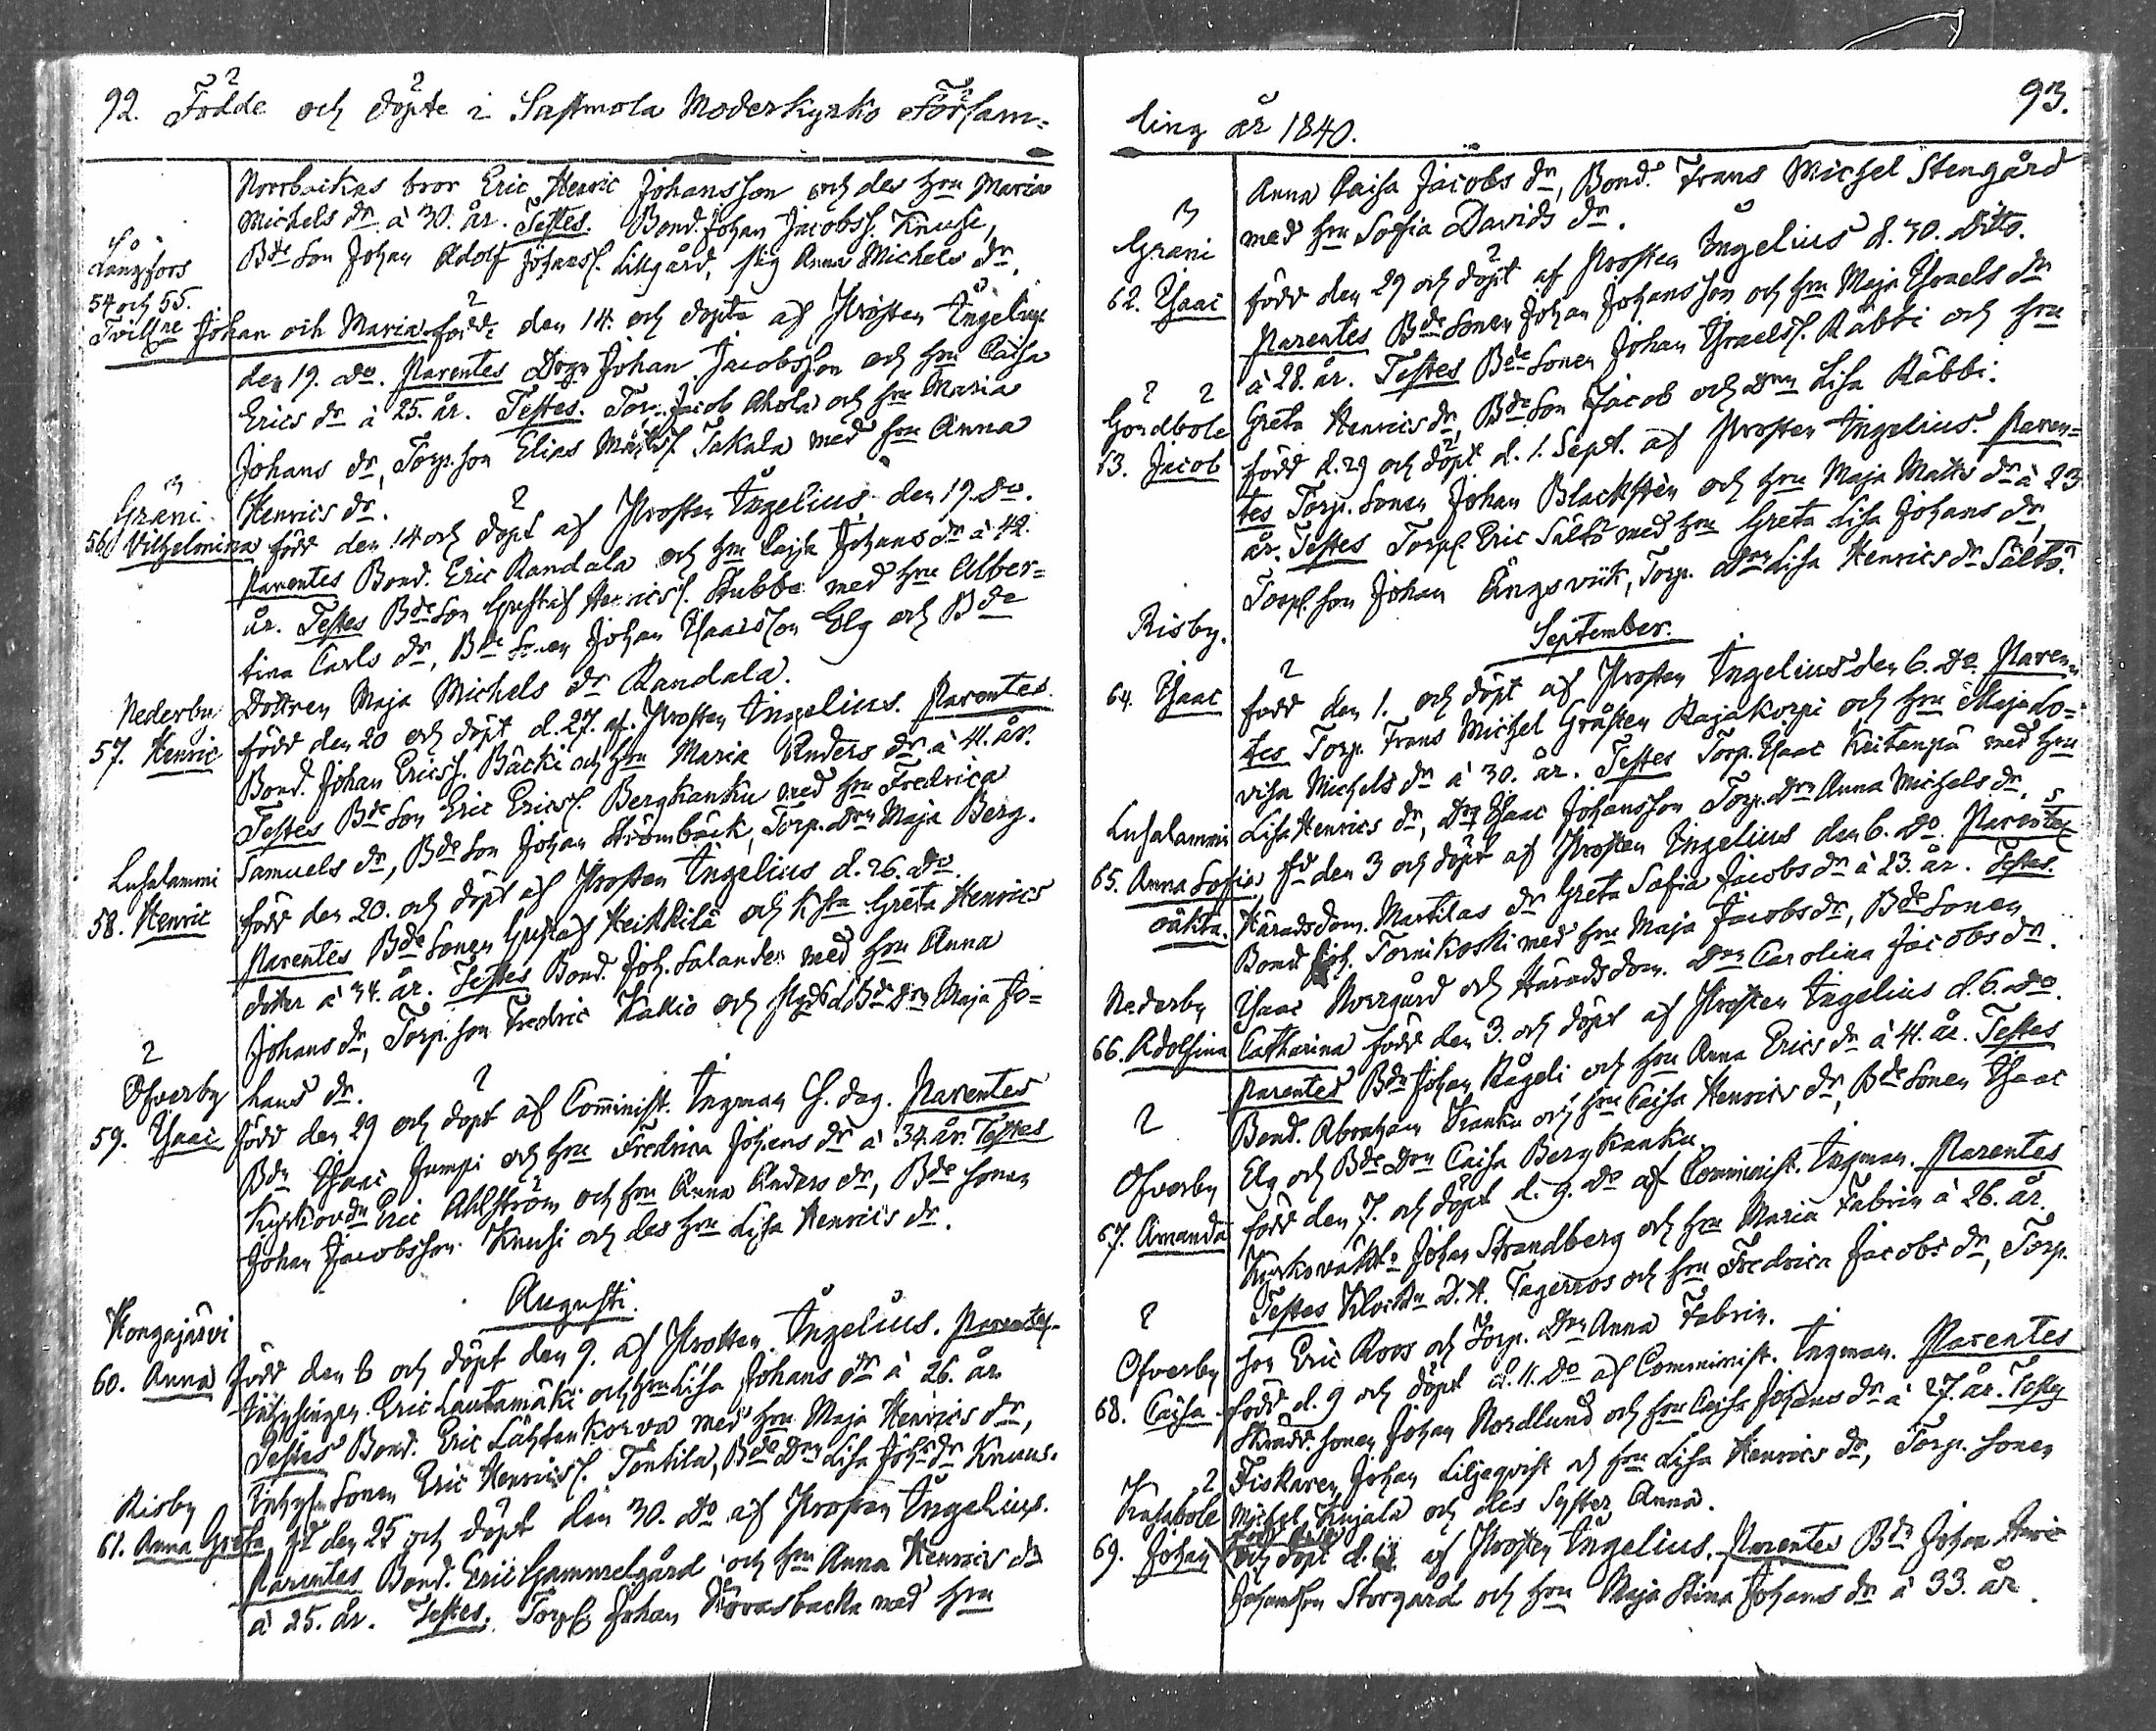 92. Födde och döpte i Sastmola Moderkyrko Församˍ
Norrbackas bror Eric Henric Johansson och des hru Maria
Michels dr à 30. år. Testes. Bond. Johan Jacobss. Knusi,
Långfors
Bde Son Johan Adolf Johanss. Lillgård, pig Anna Michels dr.
54 och 55.
Tvillne Johan och Maria födde den 14. och döpte af Prosten Ingelius
den 19. do. Parentes Drgn Johan Jacobsson och hru Caisa
Erics dr à 25. år. Testes. Torp. Jacob Ahola och hru Maria
Johans dr, Torp. son Elias Matss. Takala med hru Anna
Gräni
Henrics dr.
56. Vilhelmina född den 14 och döpt af Prosten Ingelius den 19. do.
Parentes Bond. Eric Randala och hru Caisa Johans dr à 42.
år. Testes Bde Son Gustaf Henricss. Stubbe med hru Alber=
tina Carls dr, Bde Sonen Johan Isaacsson Elg och Bde
Dottren Maja Michels dr Randala.
Nederby
57. Henric född den 20 och döpt d. 27. af Prosten Ingelius. Parentes
Bond. Johan Ericss. Bäcki och hru Maria Anders dr à 41. år.
Testes Bde Son Eric Ericss. Bergkanku med hru Fredrica
Samuels dr, Bde Son Johan Strömbäck, Torp. Drn Maja Berg.
Lusalammi
58. Henric född den 20. och döpt af Prosten Ingelius d. 26. do.
Parentes Bde Sonen Gustaf Heikkilä och Hsta Greta Henrics
dotter à 34. år. Testes Bond. Joh. Salander med hru Anna
Johans dr, Torp. son Fredric Kallio och Bde Drn Maja Jo=
Ofverby
hans dr.
59. Isaac född den 29 och döpt af Comminist. Ingman S. dag. Parentes
Bdn Isaac Jumpi och hru Fredrica Johans dr à 34. år. Testes
Kyrkovdn Eric Ahlström och hru Anna Anders dr, Bde sonen
Johan Jacobsson Knusi och des hru Lisa Henrics dr.
Augusti.
Hongajärvi
60. Anna född den 6 och döpt den 9. af Prosten Ingelius. Parentes
Inhysingen Eric Lautamäki och hru Lisa Johans dr à 26. år
Testes Bond. Eric Lähtenkorva med hru Maja Henrics dr,
Inhyse Sonen Eric Henricss. Tontila, Bde Drn Lisa Johs dr Knuus.
Risby
61. Anna Greta fd den 25 och döpt den 30. do af Prosten Ingelius.
Parentes Bond. Eric Gammelgård och hru Anna Henrics dr
à 25. år. Testes. Torp. Johan Norrsbacka med hru
93.
ling år 1840.
Anna Caisa Jacobs dr, Bond. Frans Michel Stengård
med hru Sofia Davids dr.
Gräni
62. Isaac född den 29 och döpt af Prosten Ingelius d. 30. Ditto.
Parentes Bde Sonen Johan Johansson och hru Maja Israels dr
à 28. år. Testes Bde Sonen Johan Israelss. Räbbi och hru
Greta Henrics dr, Bde Son Jacob och Drn Lisa Räbbi.
Gördböle
63. Jacob född d. 29 och döpt d. 1. Sept. af Prosten Ingelius. Paren=
tes Torp. Sonen Johan Blacksten och hru Maja Matts dr à 23
år. Testes Torp. Eric Saltö med hru Greta Lisa Johans dr,
Torp. son Johan Ängsvik, Torp. Drn Lisa Henrics dr Saltö.
Risby.
September.
64. Isaac född den 1. och döpt af Prosten Ingelius den 6. do Paren=
tes Torp. Frans Michel Gråsten Rajakorpi och hru Maja Lo=
visa Michels dr à 30. år. Testes Torp. Isaac Keitanpä med hru
Lisa Henrics dr, Drg Isaac Johansson Torp. Drn Anna Michels dr.
Lusalammi
65. Anna Sofia fd den 3 och döpt af Prosten Ingelius den 6. do Parentes
oäkta. Häradsdom. Martilas dr Greta Sofia Jacobs dr à 23. år. Testes.
Bond. Joh. Tornikoski med hru Maja Jacobs dr, Bde Sonen
Isaac Norrgård och Häradsdom. Drn Carolina Jacobs dr.
Nederby
66. Adolfina Catharina född den 3. och döpt af Prosten Ingelius d. 6. do
Parentes Bdn Johan Rågeli och hru Anna Erics dr à 41. år. Testes
Bond. Abraham Franku och hru Caisa Henrics dr, Bde Sonen Isaac
Elg och Bde Drn Caisa Bergkanku.
Ofverby
67. Amanda född den 7. och döpt d. 9. do af Comminist. Ingman. Parentes
Kyrkovakt. Johan Strandberg och hru Maria Fabrin à 26. år.
Testes Klockn A. H. Tagerros och hru Fredrica Jacobs dr, Torp.
son Eric Roos och Torp. Drn Anna Fabrin.
Ofverby
68. Caisa född d. 9 och döpt d. 11. do af Comminist. Ingman. Parentes
Skrädd. sonen Johan Nordlund och hru Caisa Johans dr à 27. år. Testes
Fiskaren Johan Liljeqvist och hru Lisa Henrics dr, Torp. sonen
Michel Kujala och des Syster Anna.
Kasaböle
69. Johan och döpt d. af Prosten Ingelius. Parentes Bdn Johan Henric
Johansson Storgård och hru Maja Stina Johans dr à 33. år.